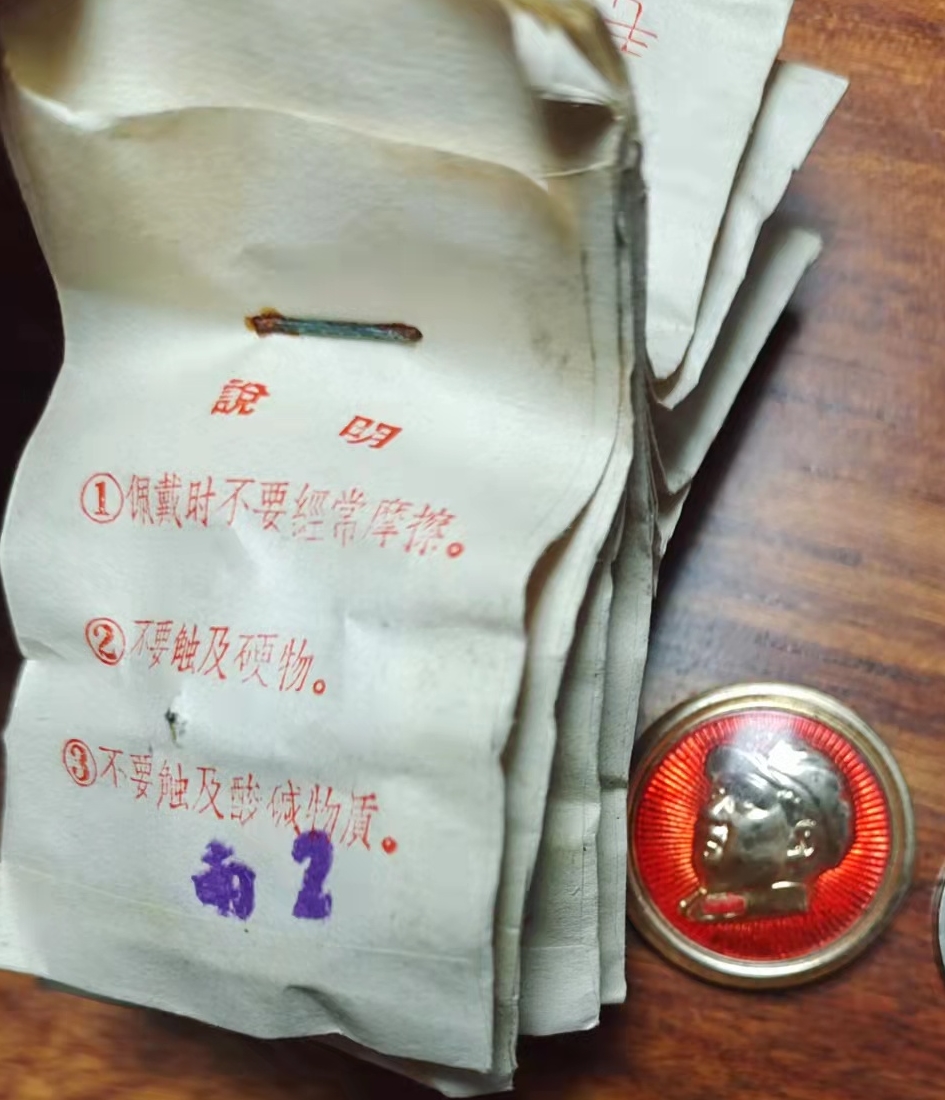 說 明
①佩戴时不要經常摩擦。
②不要触及硬物。
③不要触及酸碱物质。
2